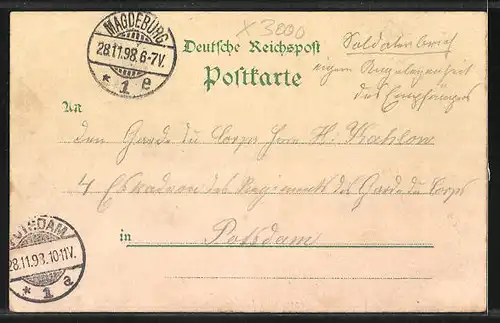 MAGDEBURG
28.11.98.6-7V.
* 1 e
X 3800
Deutsche Reichspost
Postkarte
Soldatenbrief
eigene Angelegenheit
des Empfängers
An
den Garde du Corps Herr H. Kahlow
4 Eskadron des Regiments des Garde du Corps
in Potsdam
POTSDAM
28.11.98.10-11V.
* 1 a